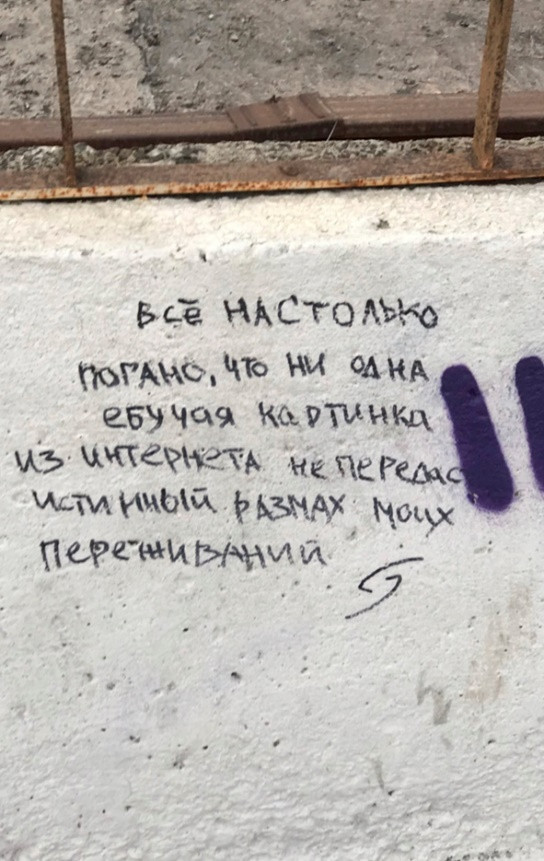 всё НАСТОЛЬКО
ПОГАНО, ЧТО НИ ОДНА
ЕБУЧАЯ КАРТИНКА
ИЗ ИНТЕРНЕТА НЕ ПЕРЕДАС
ИСТИННЫЙ РАЗМАХ МОИХ
ПЕРЕЖИВАНИЙ